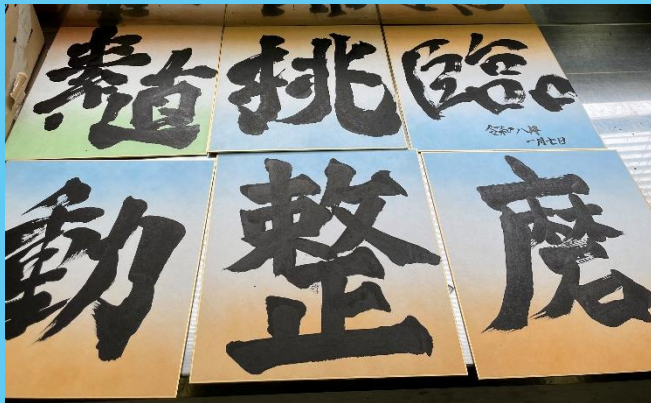 素直
挑
臨
令和八年
一月七日
動
整
磨